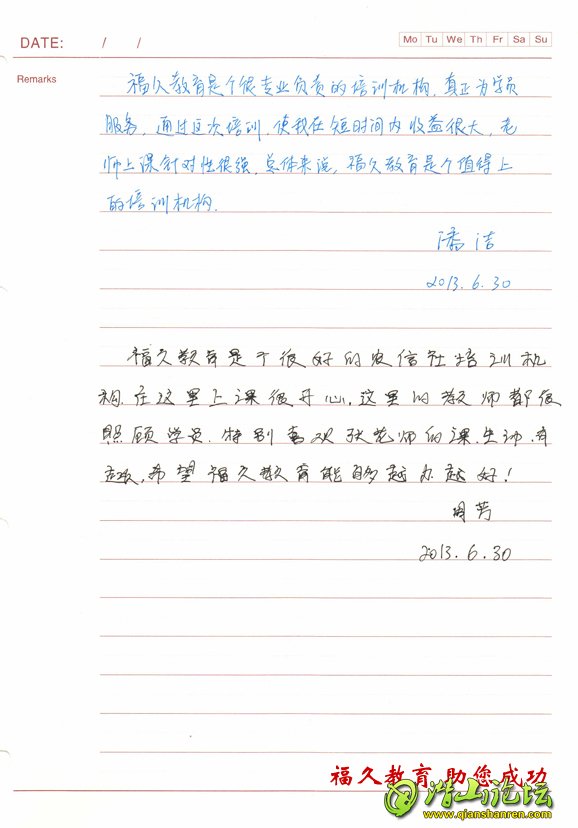 DATE: / /
Mo Tu We Th Fr Sa Su
Remarks
福久教育是个很专业负责的培训机构,真正为学员
服务,通过这次培训,使我在短时间内收益很大,老
师上课针对性很强,总体来说,福久教育是个值得上
的培训机构.
潘洁
2013.6.30
福久教育是个很好的农信社培训机
构.在这里上课很开心,这里的教师都很
照顾学员.特别喜欢张老师的课,生动.有
趣,希望福久教育能够越办越好!
周芳
2013.6.30
福久教育助您成功
潜山论坛
www.qianshanren.com